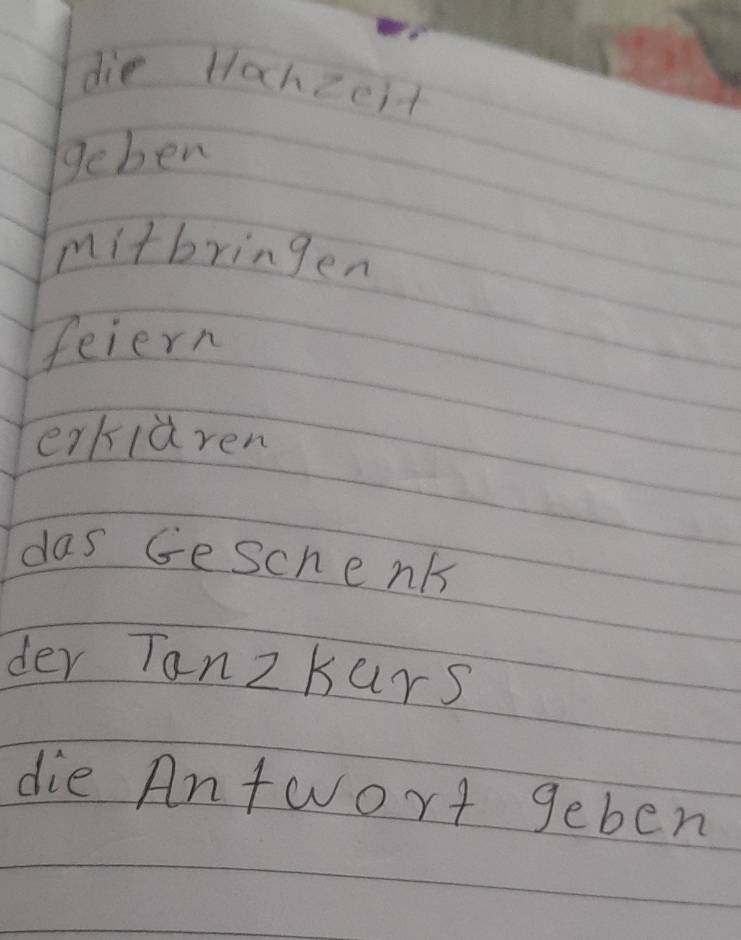 die Hahzeit
geben
mitbringen
feiern
erklären
das Geschenk
der Tanzkurs
die Antwort geben